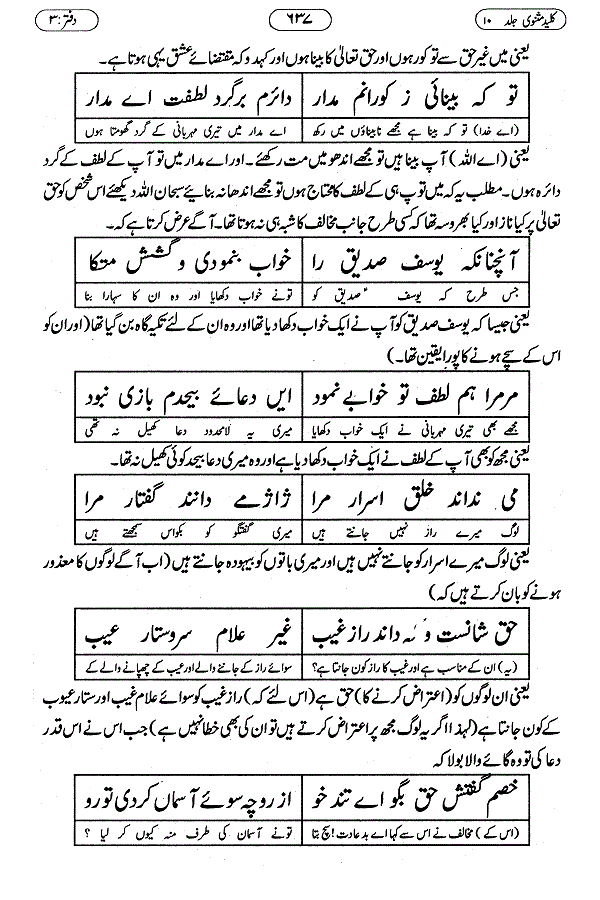 کلید مثنوی جلد ۱۰ ۶۳۷ دفتر: ۳
یعنی میں غیر حق سے تو کور ہوں اور حق تعالیٰ کا بینا ہوں اور کہدو کہ مقتضائے عشق یہی ہوتا ہے۔
تو کہ بینائی ز کورانم مدار دائرم برگرد لطفت اے مدار
(اے خدا) تو کہ بینا ہے مجھے نابیناؤں میں نہ رکھ اے مدار میں تیری مہربانی کے گرد گھومتا ہوں
یعنی (اے اللہ) آپ بینا ہیں تو مجھے اندھو میں مت رکھئے۔ اور اے مدار میں تو آپ کے لطف کے گرد
دائرہ ہوں۔ مطلب یہ کہ میں تو پ ہی کے لطف کا محتاج ہوں تو مجھے اندھا نہ بنائیے سبحان اللہ دیکھئے اس شخص کو حق
تعالیٰ پر کیا ناز اور کیا بھروسہ تھا کہ کسی طرح جانب مخالف کا شبہ ہی نہ ہوتا تھا۔ آگے عرض کرتا ہے کہ۔
آنچنانکہ یوسف صدیق را خواب بنمودی و گشش متکا
جس طرح کہ یوسف صدیق کو تونے خواب دکھایا اور وہ ان کا سہارا بنا
یعنی جیسا کہ یوسف صدیق کو آپ نے ایک خواب دکھا دیا تھا اور وہ ان کے لئے تکیہ گاہ بن گیا تھا (اور ان کو
اس کے سچے ہونے کا پورا یقین تھا۔)
مرمرا ہم لطف تو خوابے نمود ایں دعائے بیحدم بازی نبود
مجھے بھی تیری مہربانی نے ایک خواب دکھایا میری یہ لامحدود دعا کھیل نہ تھی
یعنی مجھ کو بھی آپ کے لطف نے ایک خواب دکھا دیا ہے اور وہ میری دعا بیحد کوئی کھیل نہ تھا۔
می نداند خلق اسرار مرا ژاژمے دانند گفتار مرا
لوگ میرے راز نہیں جانتے ہیں میری گفتگو کو بکواس سمجھتے ہیں
یعنی لوگ میرے اسرار کو جانتے نہیں ہیں اور میری باتوں کو بیہودہ جانتے ہیں (اب آگے لوگوں کا معذور
ہونے کو بان کرتے ہیں کہ)
حق شانست و نہ داند راز غیب غیر علام سروستار عیب
(یہ) ان کے مناسب ہے اور غیب کا راز کون جانتا ہے؟ سوائے راز کے جاننے والے اور عیب کے چھپانے والے کے
یعنی ان لوگوں کو (اعتراض کرنے کا) حق ہے (اس لئے کہ) راز غیب کو سوائے علام غیب اور ستار عیوب
کے کون جانتا ہے (لہذا اگر یہ لوگ مجھ پر اعتراض کرتے ہیں تو ان کی بھی خطا نہیں ہے) جب اس نے اس قدر
دعا کی تو وہ گائے والا بولا کہ
خصم گفتش حق بگو اے تند خو از رو چہ سوئے آسماں کردی تو رو
(اس کے) مخالف نے اس سے کہا اے بدعادت! سچ بتا تونے آسمان کی طرف منہ کیوں کر لیا ؟